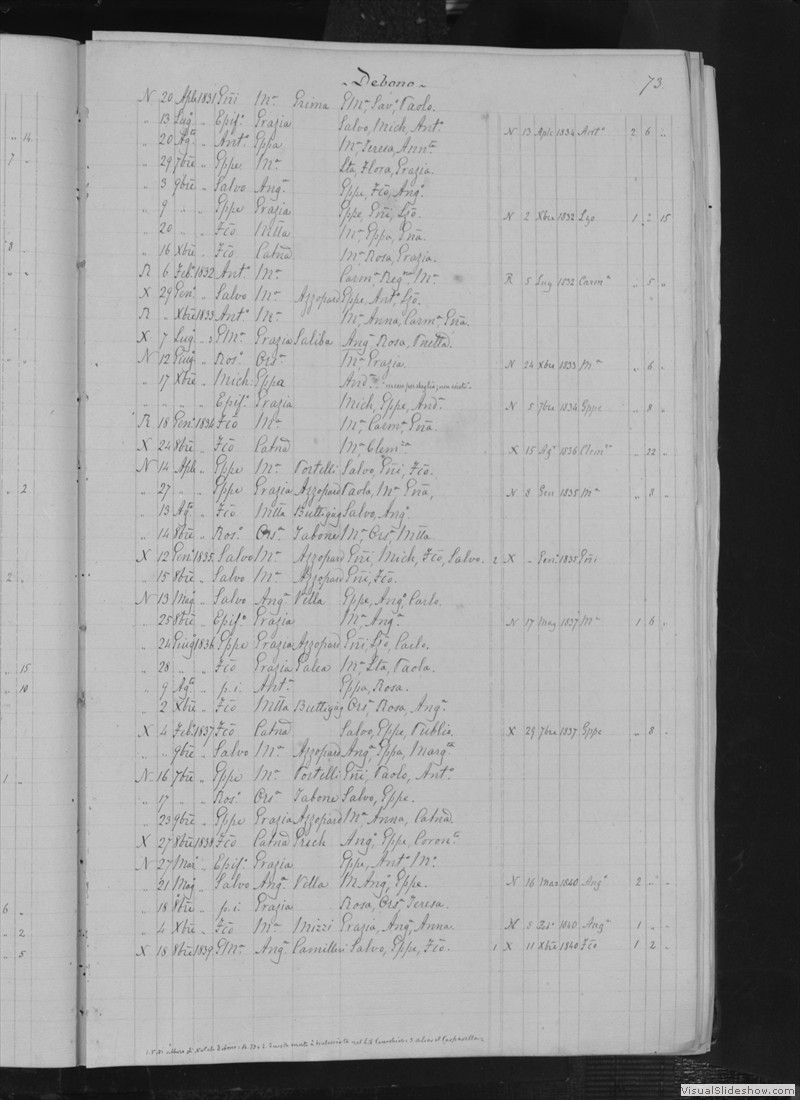 - Debono - 73
N 20 Aple 1831 Eñi Mª Grima Eml, Savª, Paolo.
" 13 Lugº " Epifº Grazia Salvo, Mich, Antº
14 " 20 Agº " Antº Gppa Mª Teresa, Annta N 13 Aple 1834 Antº 2 6 "
" 29 7bre " Gppe Mª Sta, Flora, Grazia.
" 3 9bre " Salvo Angª Gppe, Fcõ, Angº
" 9 " " Gppe Grazia Gppe, Eñi, Ljõ. N 2 Xbre 1832 Lzo. 1 2 15
" 20 " " Fcõ Mtta Mª Gppa, Eña.
8 " 16 Xbre " Fcõ Catña Mª Rosa, Grazia.
R 6 Febº 1832 Antº Mª Carmª Regna Mª R 5 Lug 1832 Carmª " 5 "
X 29 Genº " Salvo Mª Azzopard Gppe, Antº Ljõ.
R " Xbre 1833 Antº Mª Mª Anna, Carmª Eña.
X 7 Lugº " EMl Grazia Saliba Angª Rosa, Vnetta.
N 12 Giugº " Rosº Orsª Mª Grazia. N 24 Xbre 1833 Mª " 6 "
" 17 Xbre " Mich Gppa Andª
" " " " Epifº Grazia Mich, Gppe, Andª N 5 7bre 1834 Gppe " 8 "
R 18 Genº 1834 Fcõ Mª Mª Carmª Eña.
X 24 8bre " Fcõ Catña Mª Clemza X 15 Agº 1836 Clemza " 22 "
N 14 Aple " Gppe Mª Portelli Salvo, Eñi, Fcõ.
2 " 27 " " Gppe Grazia Azzopard Paolo, Mª Eña, N 8 Gen 1835 Mª " 8 "
" 13 Agº " Fcõ Mtta Buttigieg Salvo, Angª
" 14 8bre " Rosº Orsª Tabone Mª Orsª Mtta.
X 12 Genº 1835 Salvo Mª Azzopard Eñi, Mich, Fcõ, Salvo. 2 X " Genº 1835 Eñi
2 " 15 8bre " Salvo Mª Azzopard Eñi, Fcõ.
N 13 Mag " Salvo Angª Vella Gppe, Angº Carlo.
" 25 8bre " Epifº Grazia Mª Angª N 17 Mag 1837 Mª 1 6 "
" 24 Giugº 1836 Gppe Grazia Azzopard Eñi, Ljõ, Carlo.
15 " 28 " " Fcõ Grazia Galea Mª Sta, Paola.
10 " 9 Agº " p.i. Antª Gppa, Rosa.
" 2 Xbre " Fcõ Mtta Buttigieg Orsª Rosa, Angª
X 4 Febº 1837 Fcõ Catña Salvo, Gppe, Publio. X 29 7bre 1837 Gppe " 8 "
" " 9bre " Salvo Mª Azzopard Angª Gppa, Margta
1 N 16 7bre " Gppe Mª Portelli Eñi, Paolo, Antº
" 17 " " Rosº Orsª Tabone Salvo, Gppe.
" 23 9bre " Gppe Grazia Azzopard Mª Anna, Catña.
X 27 8bre 1838 Fcõ Catña Grech Angª Gppe, Coronta
N 27 Mar " Epifº Grazia Gppe, Antº Mª
" 21 Mag " Salvo Angª Vella M Angª Gppe. N 16 Mar 1840 Angº 2 " "
6 " 18 8bre " p.i. Grazia Rosa, Orsª Teresa.
2 " 4 Xbre " Fcõ Mª Mizzi Grazia, Angª Anna. N 5 Febº 1840 Angª 1 " "
5 X 18 8bre 1839 EMl Angª Camilleri Salvo, Gppe, Fcõ. 1 X 11 Xbre 1840 Fcõ 1 2 "
VisualSlideshow.com